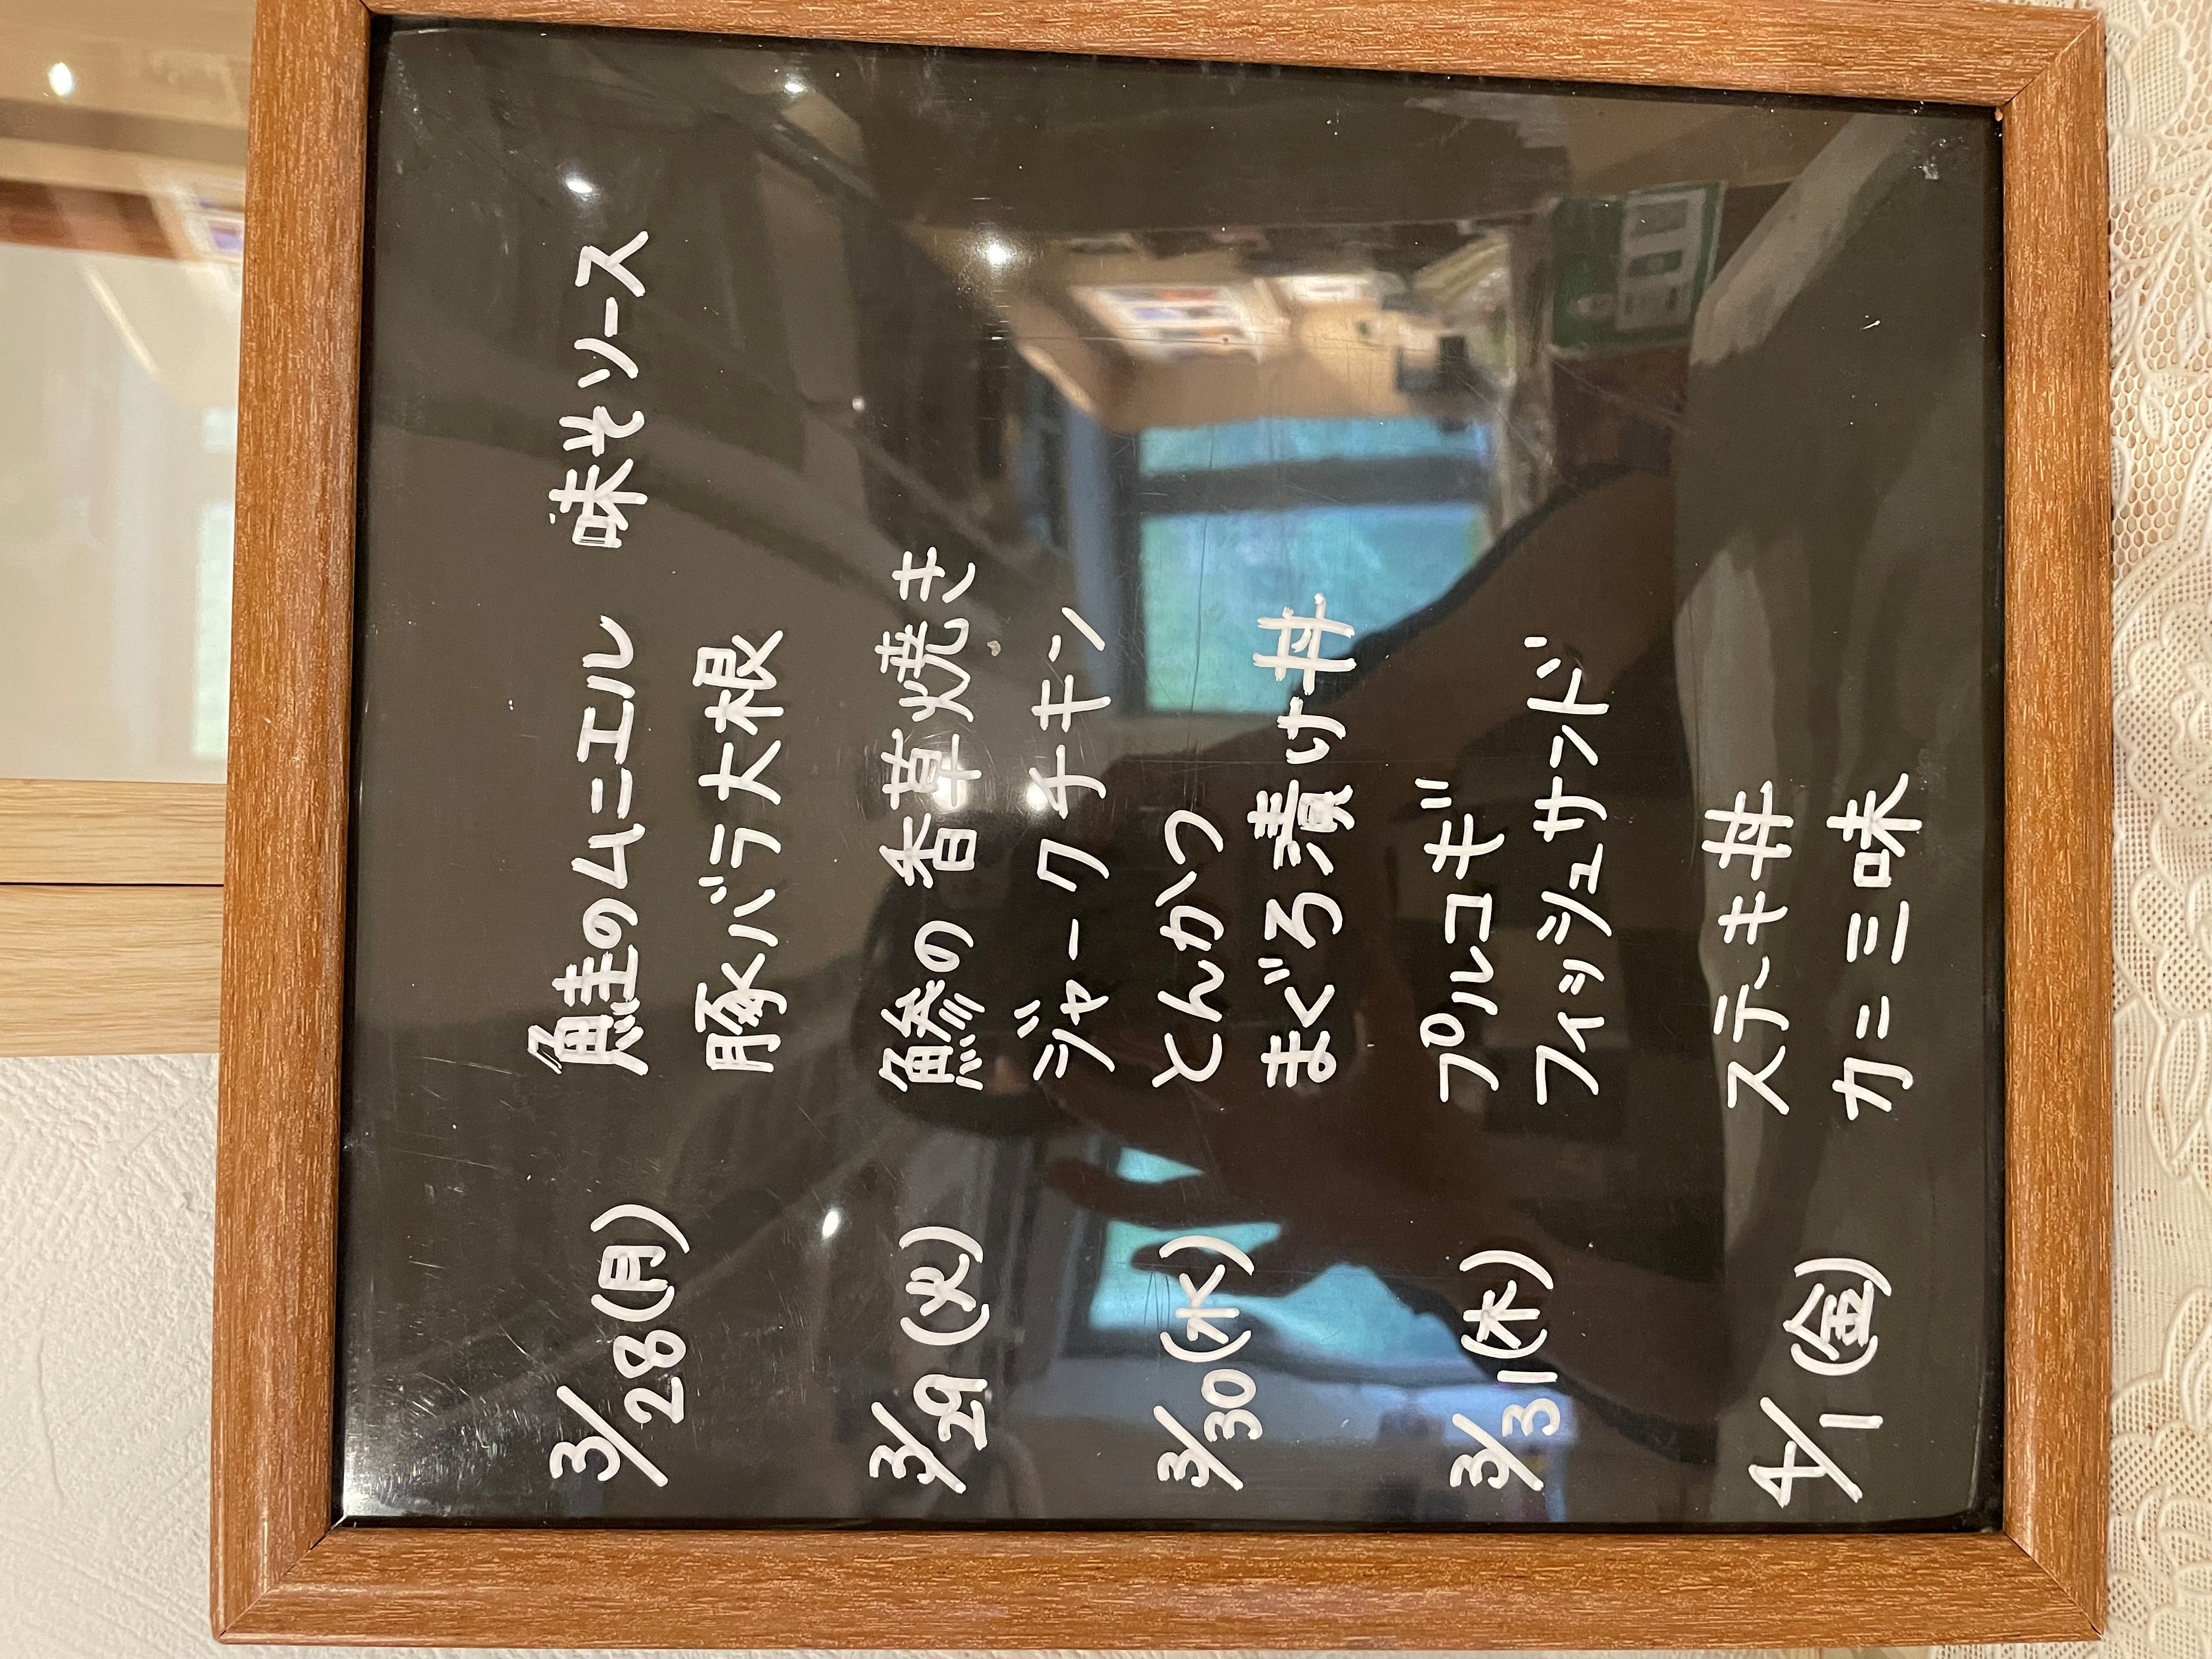 3/28(月) 鮭のムニエル 味そソース
豚バラ大根
3/29(火) 鯵の香草焼き
ジャークチキン
3/30(水) とんかつ
まぐろ漬け丼
3/31(木) プルコギ
フィッシュサンド
4/1(金) ステーキ丼
カニ三味